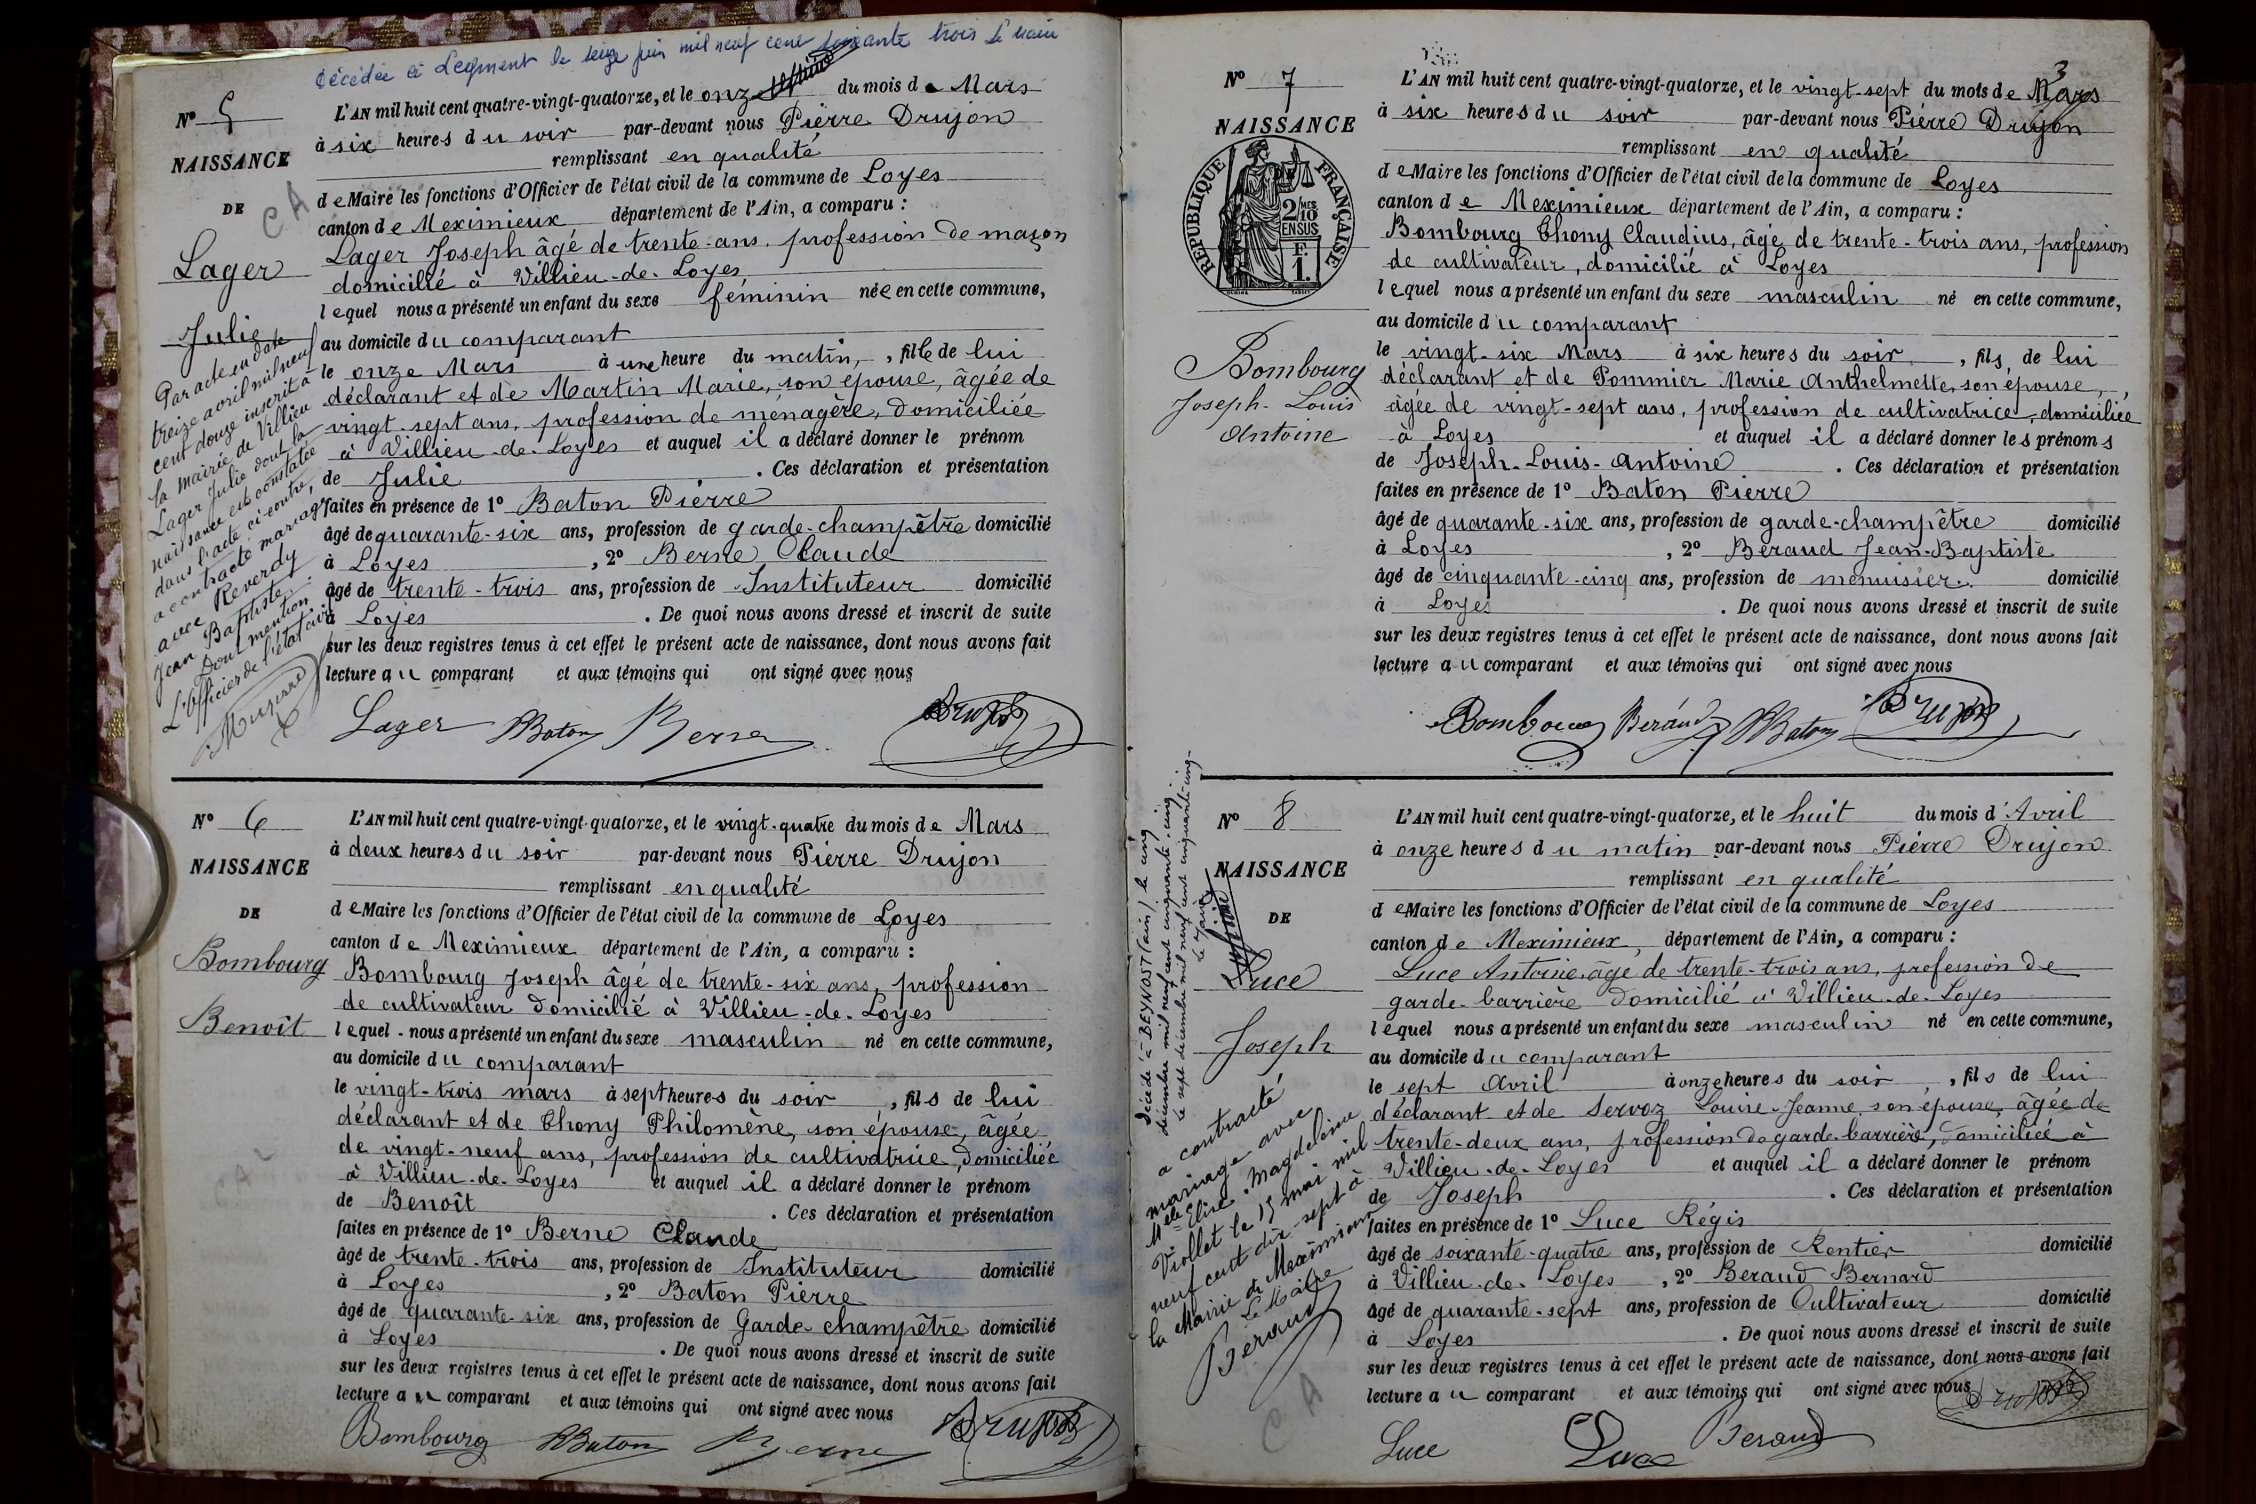 décédée à Lagnieu le seize juin mil neuf cent soixante trois Le maire
Nº 5
NAISSANCE
DE
Lager
Julie
C A
L'AN mil huit cent quatre-vingt-quatorze, et le onze du mois de Mars
à six heures du soir par-devant nous Pierre Drujon
remplissant en qualité
de Maire les fonctions d'Officier de l'état civil de la commune de Loyes
canton de Meximieux département de l'Ain, a comparu :
Lager Joseph âgé de trente-ans, profession de maçon
domicilié à Villieu-de-Loyes
lequel nous a présenté un enfant du sexe féminin née en cette commune,
au domicile du comparant
le onze Mars à une heure du matin, , fille de lui
déclarant et de Martin Marie, son épouse, âgée de
vingt-sept ans, profession de ménagère, domiciliée
à Villieu-de-Loyes et auquel il a déclaré donner le prénom
de Julie . Ces déclaration et présentation
faites en présence de 1º Baton Pierre
âgé de quarante-six ans, profession de garde-champêtre domicilié
à Loyes , 2º Berne Claude
âgé de trente-trois ans, profession de Instituteur domicilié
à Loyes . De quoi nous avons dressé et inscrit de suite
sur les deux registres tenus à cet effet le présent acte de naissance, dont nous avons fait
lecture au comparant et aux témoins qui ont signé avec nous
Lager PBaton Berne Drujon
Par acte en date
treize avril mil neuf
cent douze inscrit à
la mairie de Villieu
Lager Julie dont la
naissance est constatée
dans l'acte ci-contre,
a contracté mariage
avec Reverdy
Jean Baptiste.
Dont mention
L'Officier de l'état civil
Nº 6
NAISSANCE
DE
Bombourg
Benoît
L'AN mil huit cent quatre-vingt-quatorze, et le vingt-quatre du mois de Mars
à deux heures du soir par-devant nous Pierre Drujon
remplissant en qualité
de Maire les fonctions d'Officier de l'état civil de la commune de Loyes
canton de Meximieux département de l'Ain, a comparu :
Bombourg Joseph âgé de trente-six ans, profession
de cultivateur domicilié à Villieu-de-Loyes
lequel nous a présenté un enfant du sexe masculin né en cette commune,
au domicile du comparant
le vingt-trois mars à sept heures du soir , fils de lui
déclarant et de Thony Philomène, son épouse, âgée
de vingt-neuf ans, profession de cultivatrice, domiciliée
à Villieu-de-Loyes et auquel il a déclaré donner le prénom
de Benoît . Ces déclaration et présentation
faites en présence de 1º Berne Claude
âgé de trente-trois ans, profession de Instituteur domicilié
à Loyes , 2º Baton Pierre
âgé de quarante-six ans, profession de Garde-champêtre domicilié
à Loyes . De quoi nous avons dressé et inscrit de suite
sur les deux registres tenus à cet effet le présent acte de naissance, dont nous avons fait
lecture au comparant et aux témoins qui ont signé avec nous
Bombourg PBaton Berne Drujon
3
Nº 7
NAISSANCE
RÉPUBLIQUE FRANÇAISE
2/10 MES
EN SUS
F.
1.
Bombourg
Joseph-Louis
Antoine
L'AN mil huit cent quatre-vingt-quatorze, et le vingt-sept du mois de Mars
à six heures du soir par-devant nous Pierre Drujon
remplissant en qualité
de Maire les fonctions d'Officier de l'état civil de la commune de Loyes
canton de Meximieux département de l'Ain, a comparu :
Bombourg Thony Claudius, âgé de trente-trois ans, profession
de cultivateur, domicilié à Loyes
lequel nous a présenté un enfant du sexe masculin né en cette commune,
au domicile du comparant
le vingt-six Mars à six heures du soir , fils de lui
déclarant et de Pommier Marie Anthelmette, son épouse,
âgée de vingt-sept ans, profession de cultivatrice, domiciliée
à Loyes et auquel il a déclaré donner les prénoms
de Joseph-Louis-Antoine . Ces déclaration et présentation
faites en présence de 1º Baton Pierre
âgé de quarante-six ans, profession de garde-champêtre domicilié
à Loyes , 2º Beraud Jean-Baptiste
âgé de cinquante-cinq ans, profession de menuisier domicilié
à Loyes . De quoi nous avons dressé et inscrit de suite
sur les deux registres tenus à cet effet le présent acte de naissance, dont nous avons fait
lecture au comparant et aux témoins qui ont signé avec nous
Bombourg Beraud PBaton Drujon
Nº 8
NAISSANCE
DE
Luce
Joseph
L'AN mil huit cent quatre-vingt-quatorze, et le huit du mois d'Avril
à onze heures du matin par-devant nous Pierre Drujon
remplissant en qualité
de Maire les fonctions d'Officier de l'état civil de la commune de Loyes
canton de Meximieux, département de l'Ain, a comparu :
Luce Antoine âgé de trente-trois ans, profession de
garde-barrière domicilié à Villieu-de-Loyes
lequel nous a présenté un enfant du sexe masculin né en cette commune,
au domicile du comparant
le sept Avril à onze heures du soir , fils de lui
déclarant et de Servoz Louise-Jeanne, son épouse, âgée de
trente-deux ans, profession de garde-barrière, domiciliée à
Villieu-de-Loyes et auquel il a déclaré donner le prénom
de Joseph . Ces déclaration et présentation
faites en présence de 1º Luce Régis
âgé de soixante-quatre ans, profession de Rentier domicilié
à Villieu-de-Loyes , 2º Beraud Bernard
âgé de quarante-sept ans, profession de Cultivateur domicilié
à Loyes . De quoi nous avons dressé et inscrit de suite
sur les deux registres tenus à cet effet le présent acte de naissance, dont nous avons fait
lecture au comparant et aux témoins qui ont signé avec nous
Drujon
Luce Luce Beraud
Décédé à BEYNOST (Ain) le cinq
décembre mil neuf cent cinquante-cinq
Le sept décembre mil neuf cent cinquante-cinq
Le Maire
a contracté
mariage avec
Melle Elise-Magdeleine
Viollet le 15 mai mil
neuf cent dix-sept à
la Mairie de Meximieux
Le Maire
Béraud
C A